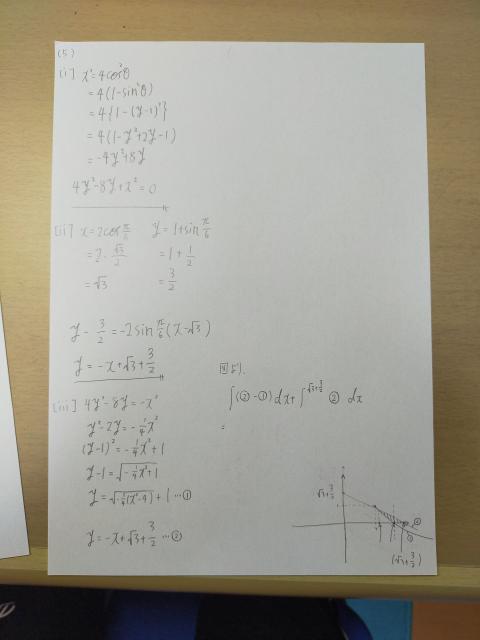 (5)
[i] x²=4cos²θ
=4(1-sin²θ)
=4{1-(y-1)²}
=4(1-y²+2y-1)
=-4y²+8y
4y²-8y+x²=0
[ii] x=2cos π/6 y=1+sin π/6
=2・√3/2 =1+1/2
=√3 =3/2
y-3/2=-2sin π/6 (x-√3)
y=-x+√3+3/2
[iii] 4y²-8y=-x²
y²-2y=-1/4x²
(y-1)²=-1/4x²+1
y-1=√(-1/4x²+1)
y=√(-1/4(x²-4))+1 …①
y=-x+√3+3/2 …②
図より,
∫(②-①)dx+∫^(√3+3/2) ② dx
=
√3+3/2
②
①
(√3+3/2)